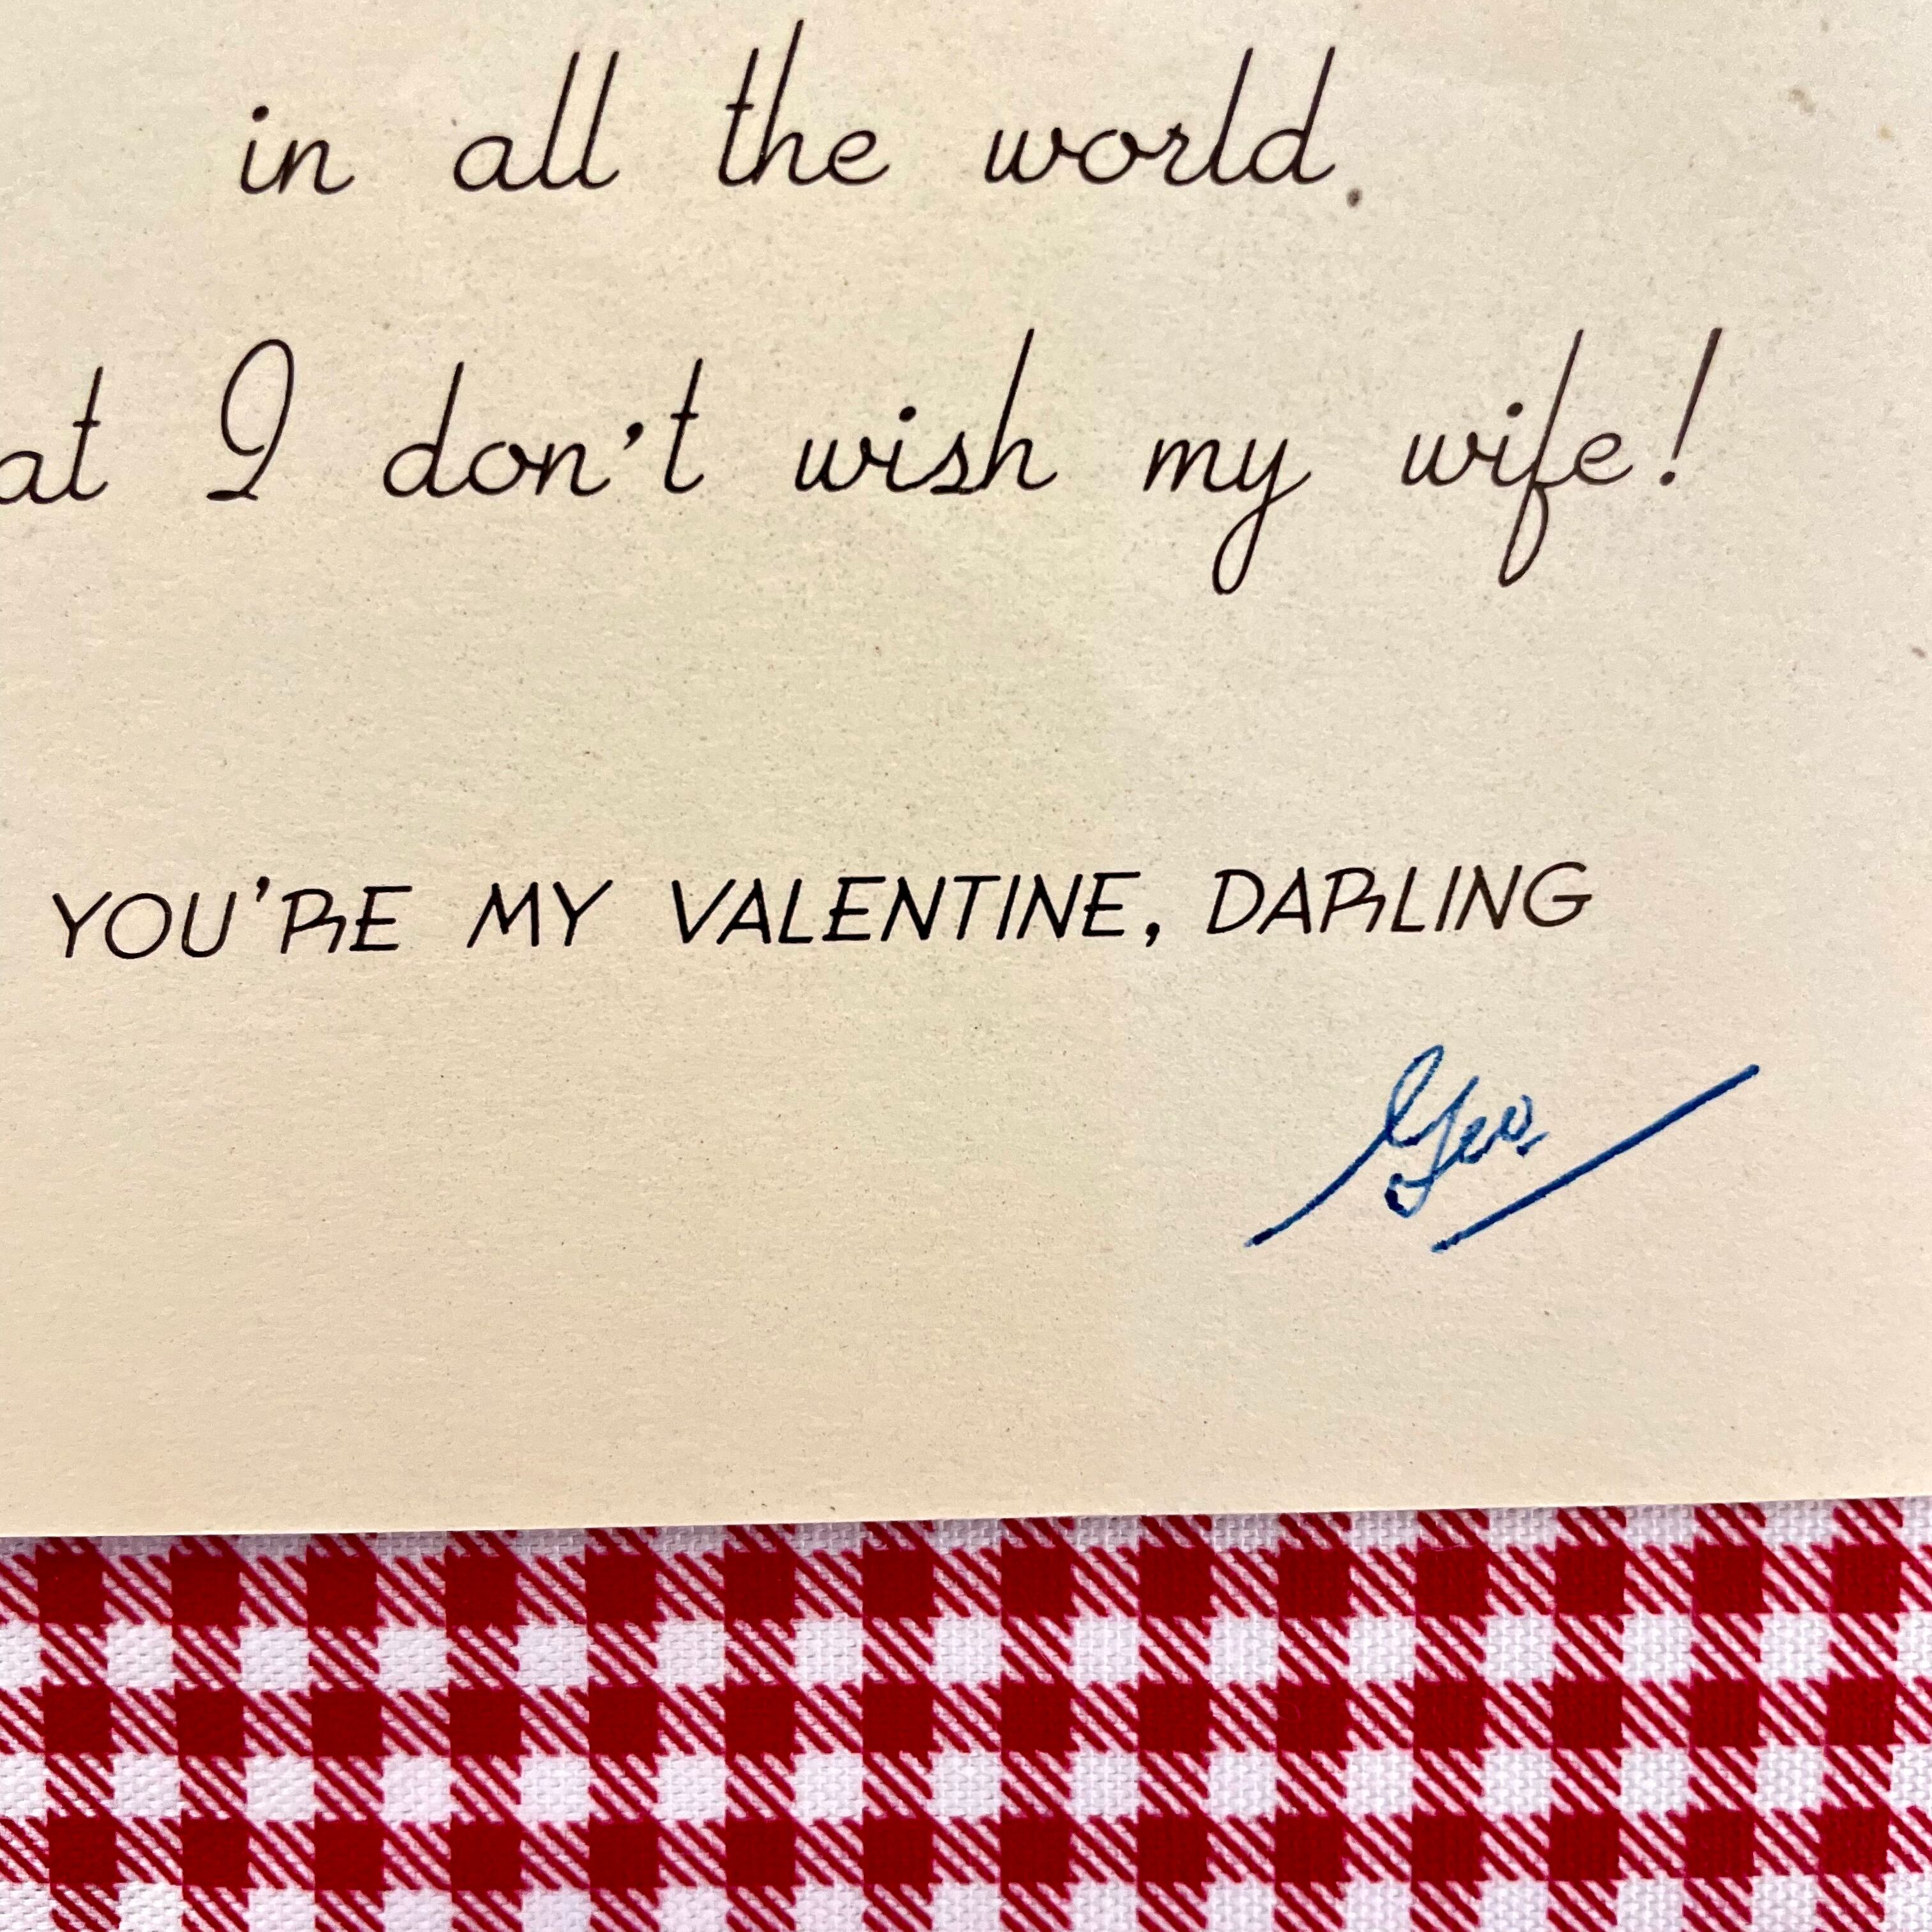 in all the world.
at I don't wish my wife!
YOU'RE MY VALENTINE, DARLING
Geo